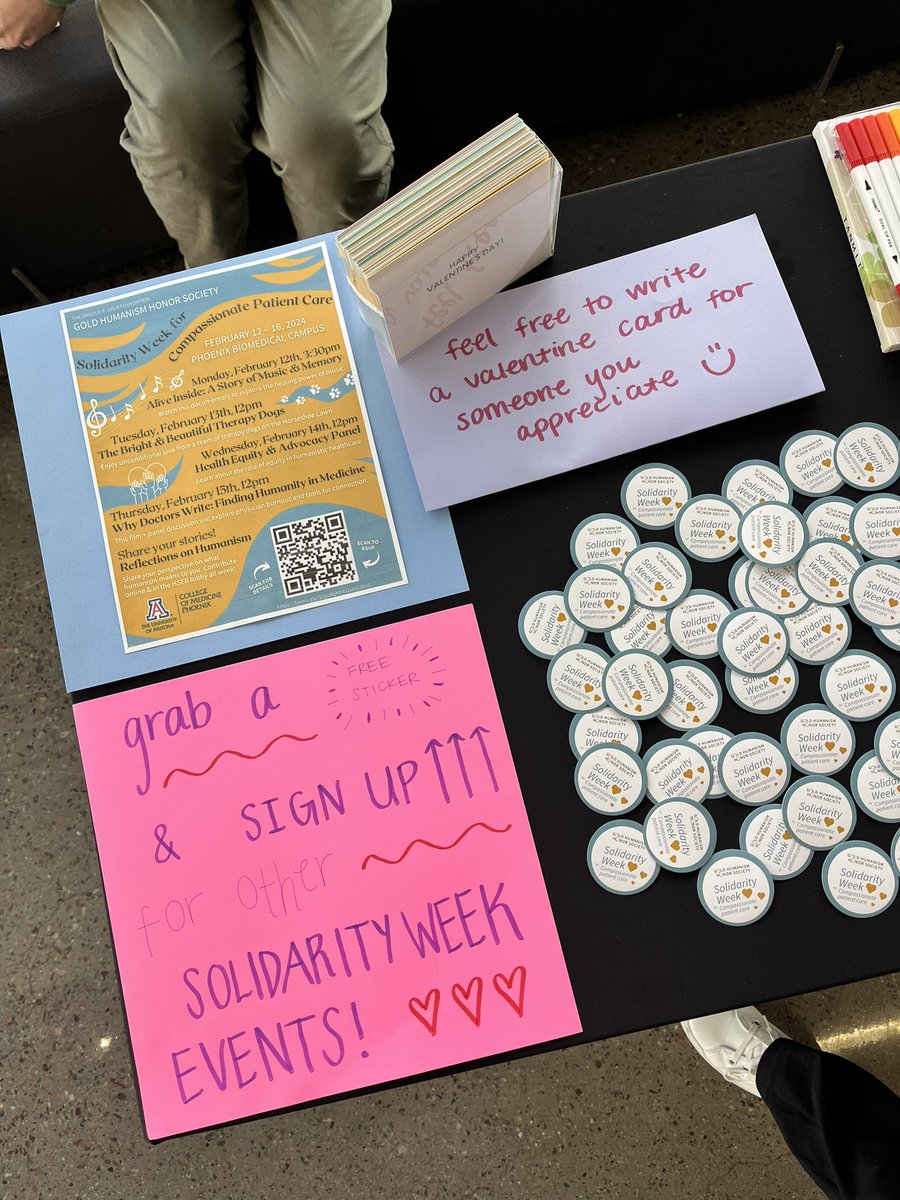 THE ARNOLD P. GOLD FOUNDATION
GOLD HUMANISM HONOR SOCIETY
Solidarity Week for
Compassionate Patient Care
FEBRUARY 12 – 16, 2024
PHOENIX BIOMEDICAL CAMPUS
Monday, February 12th, 3:30pm
Alive Inside: A Story of Music & Memory
Watch this documentary to explore the healing power of music.
Tuesday, February 13th, 12pm
The Bright & Beautiful Therapy Dogs
Enjoy unconditional love from a team of therapy dogs on the Horseshoe Lawn.
Wednesday, February 14th, 12pm
Health Equity & Advocacy Panel
Learn about the role of equity in humanistic healthcare.
Thursday, February 15th, 12pm
Why Doctors Write: Finding Humanity in Medicine
This film + panel discussion will explore physician burnout and tools for connection.
Share your stories!
Reflections on Humanism
Share your perspective on what
humanism means to you. Contribute
online & in the HSEB lobby all week!
SCAN FOR
DETAILS
SCAN TO
RSVP
A
THE UNIVERSITY
OF ARIZONA
COLLEGE
OF MEDICINE
PHOENIX
HAPPY
VALENTINE'S DAY!
feel free to write
a valentine card for
someone you
appreciate
grab a
FREE
STICKER
& SIGN UP
for other
SOLIDARITY WEEK
EVENTS!
GOLD HUMANISM
HONOR SOCIETY
Solidarity
Week
for Compassionate
patient care